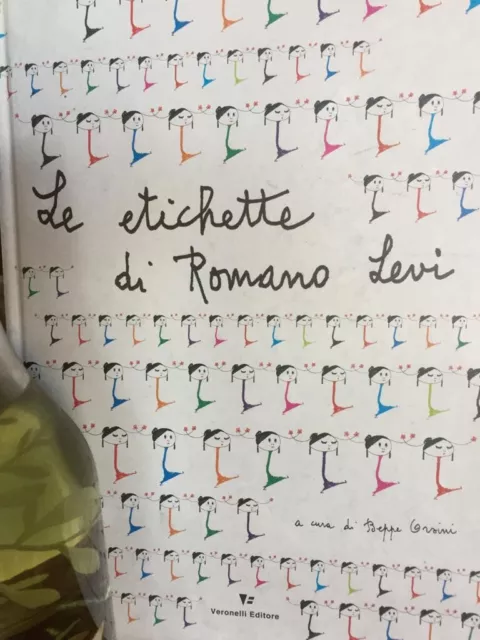 Le etichette
di Romano Levi
a cura di Beppe Orsini
Veronelli Editore